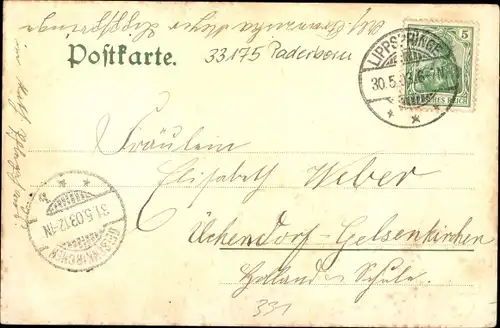 Postkarte.
33175 Paderborn
LIPPSPRINGE
30.5.03.
5
DEUTSCHES REICH
Fräulein
Elisabeth Weber
Ückendorf-Gelsenkirchen
Hollandes Schule.
331
GELSENKIRCHEN
31.5.03.12-1N